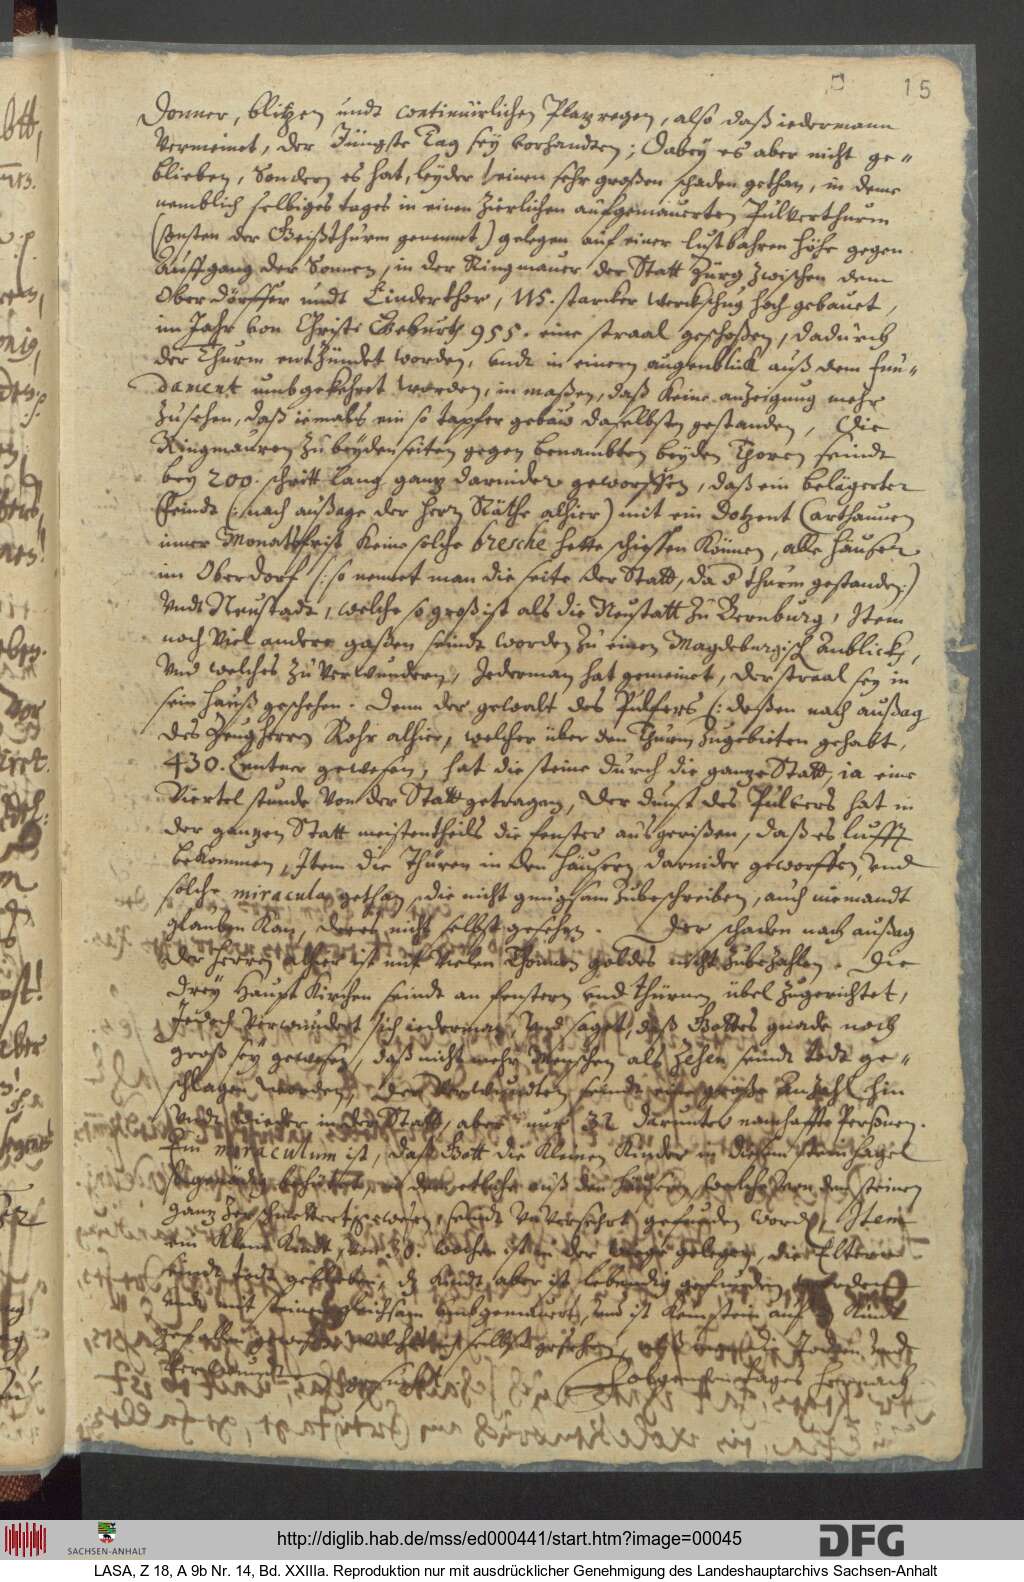 15
Donner, blitzen undt continuirlichen Platzregen, also daß iedermann
Vermeinet, der Jüngste Tag sey vorhandten; Dabey es aber nicht ge-
blieben, Sondern es hat, leyder! einen sehr großen schaden gethan, in deme
nemblich selbiges tages in einen Zierlichen aufgemauerten Pulverthurm
(sonsten der Geißthurm genennet) gelegen auf einer lustbahren höhe gegen
Auffgang der Sonnen, in der Ringmauer der Statt Zürg zwischen dem
Oberdörffer undt Linderthor, 115. starcker werckschug hoch gebauet,
im Jahr von Christi Geburth 955. eine straal geschoßen, dadurch
der Thurm entzündet worden, undt in einem augenblick auß dem Fun-
dament umbgekehret worden, in maßen, daß keine anzeigung mehr
zu sehen, daß iemals ein so tapfer gebäw daselbsten gestanden, Die
Ringmauren zu beyden seiten gegen benambten beyden Thoren seindt
bey 200. schritt lang gantz darnider geworffen, daß ein belägerter
Feindt (: nach außage der Herrn Räthe alhier) mit ein Dotzent Carthaunen
inner Monatsfrist keine solche bresche hette schiessen können, alle häuser
im Oberdorf (: so nennet man die seite der Statt, da d thurm gestanden:)
Undt Neustadt, welche so groß ist als die Neustatt zu Bernburg, Item
noch viel andere gaßen seindt worden zu einen Magdeburgisch Anblicke,
Und welches zu verwundern, Jederman hat gemeinet, der straal sey in
sein Hauß geschehen. Denn der gewalt des Pulfers (: deßen nach außag
des Zeugherrn Rohr alhier, welcher über den Thurm zugebieten gehabt,
430. Centner gewesen, hat die steine durch die gantze Statt, ia eine
Viertel stunde von der Statt getragen, Der dunst des Pulvers hat in
der gantzen Statt meistentheils die fenster ausgerißen, daß es lufft
bekommen, Item die Thüren in den Häusern darnider geworffen, und
solche miracula gethan, die nicht gnugsam zubeschreiben, auch niemandt
glauben kan, ders nicht selbst gesehen. Der schaden nach außag
der Herren alhier ist mit vielen Thonnen goldes nicht zubezahlen. Die
drey Haupt Kirchen seindt an fenstern und thürnen übel zugerichtet,
Jedoch verwundert sich iederman, und saget, daß Gottes gnade noch
groß sey gewesen, daß nicht mehr Menschen als Zehen seindt todt ge-
schlagen worden, Der verwundten seindt eine große Anzahl hin
undt wieder in der Statt, aber nur 32 darunter namhaffte Persohnen.
Ein miraculum ist, daß Gott die kleinen Kinder in diesem steinhagel
so gnädig behütet, in dem etliche auß den Häusern welche von den steinen
gantz zerschmettert gewesen, seindt unversehrt gefunden word, Item
ein klein Kindt, von 30. wochen ist in der wiege gelegen, die Eltern
seindt todt geblieben, dz kindt aber ist lebendig gefunden worden
undt mit steinen gleichsam umbgemauert, und ist kein stein auf Kindt
gefallen gewesen, welches ich selbst gesehen, die Todten undt
Verwundt obgemelten Tages hernach
http://diglib.hab.de/mss/ed000441/start.htm?image=00045
DFG
SACHSEN-ANHALT
LASA, Z 18, A 9b Nr. 14, Bd. XXIIIa. Reproduktion nur mit ausdrücklicher Genehmigung des Landeshauptarchivs Sachsen-Anhalt